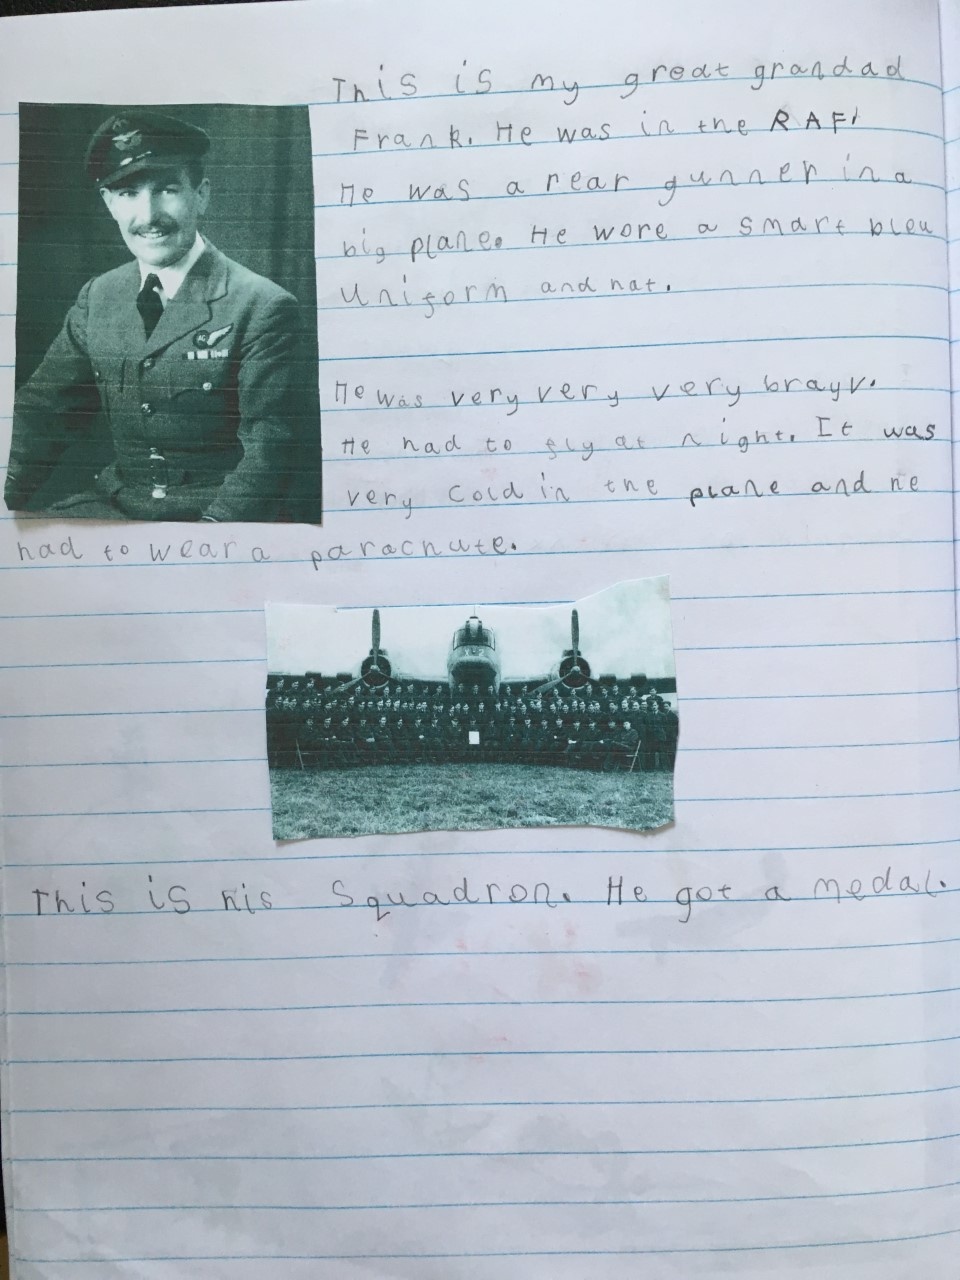 This is my great grandad
Frank. He was in the RAF.
He was a rear gunner in a
big plane. He wore a smart bleu
uniform and hat.
He was very very very brayv.
He had to fly at night. It was
very cold in the plane and he
had to wear a parachute.
This is his Squadron. He got a medal.